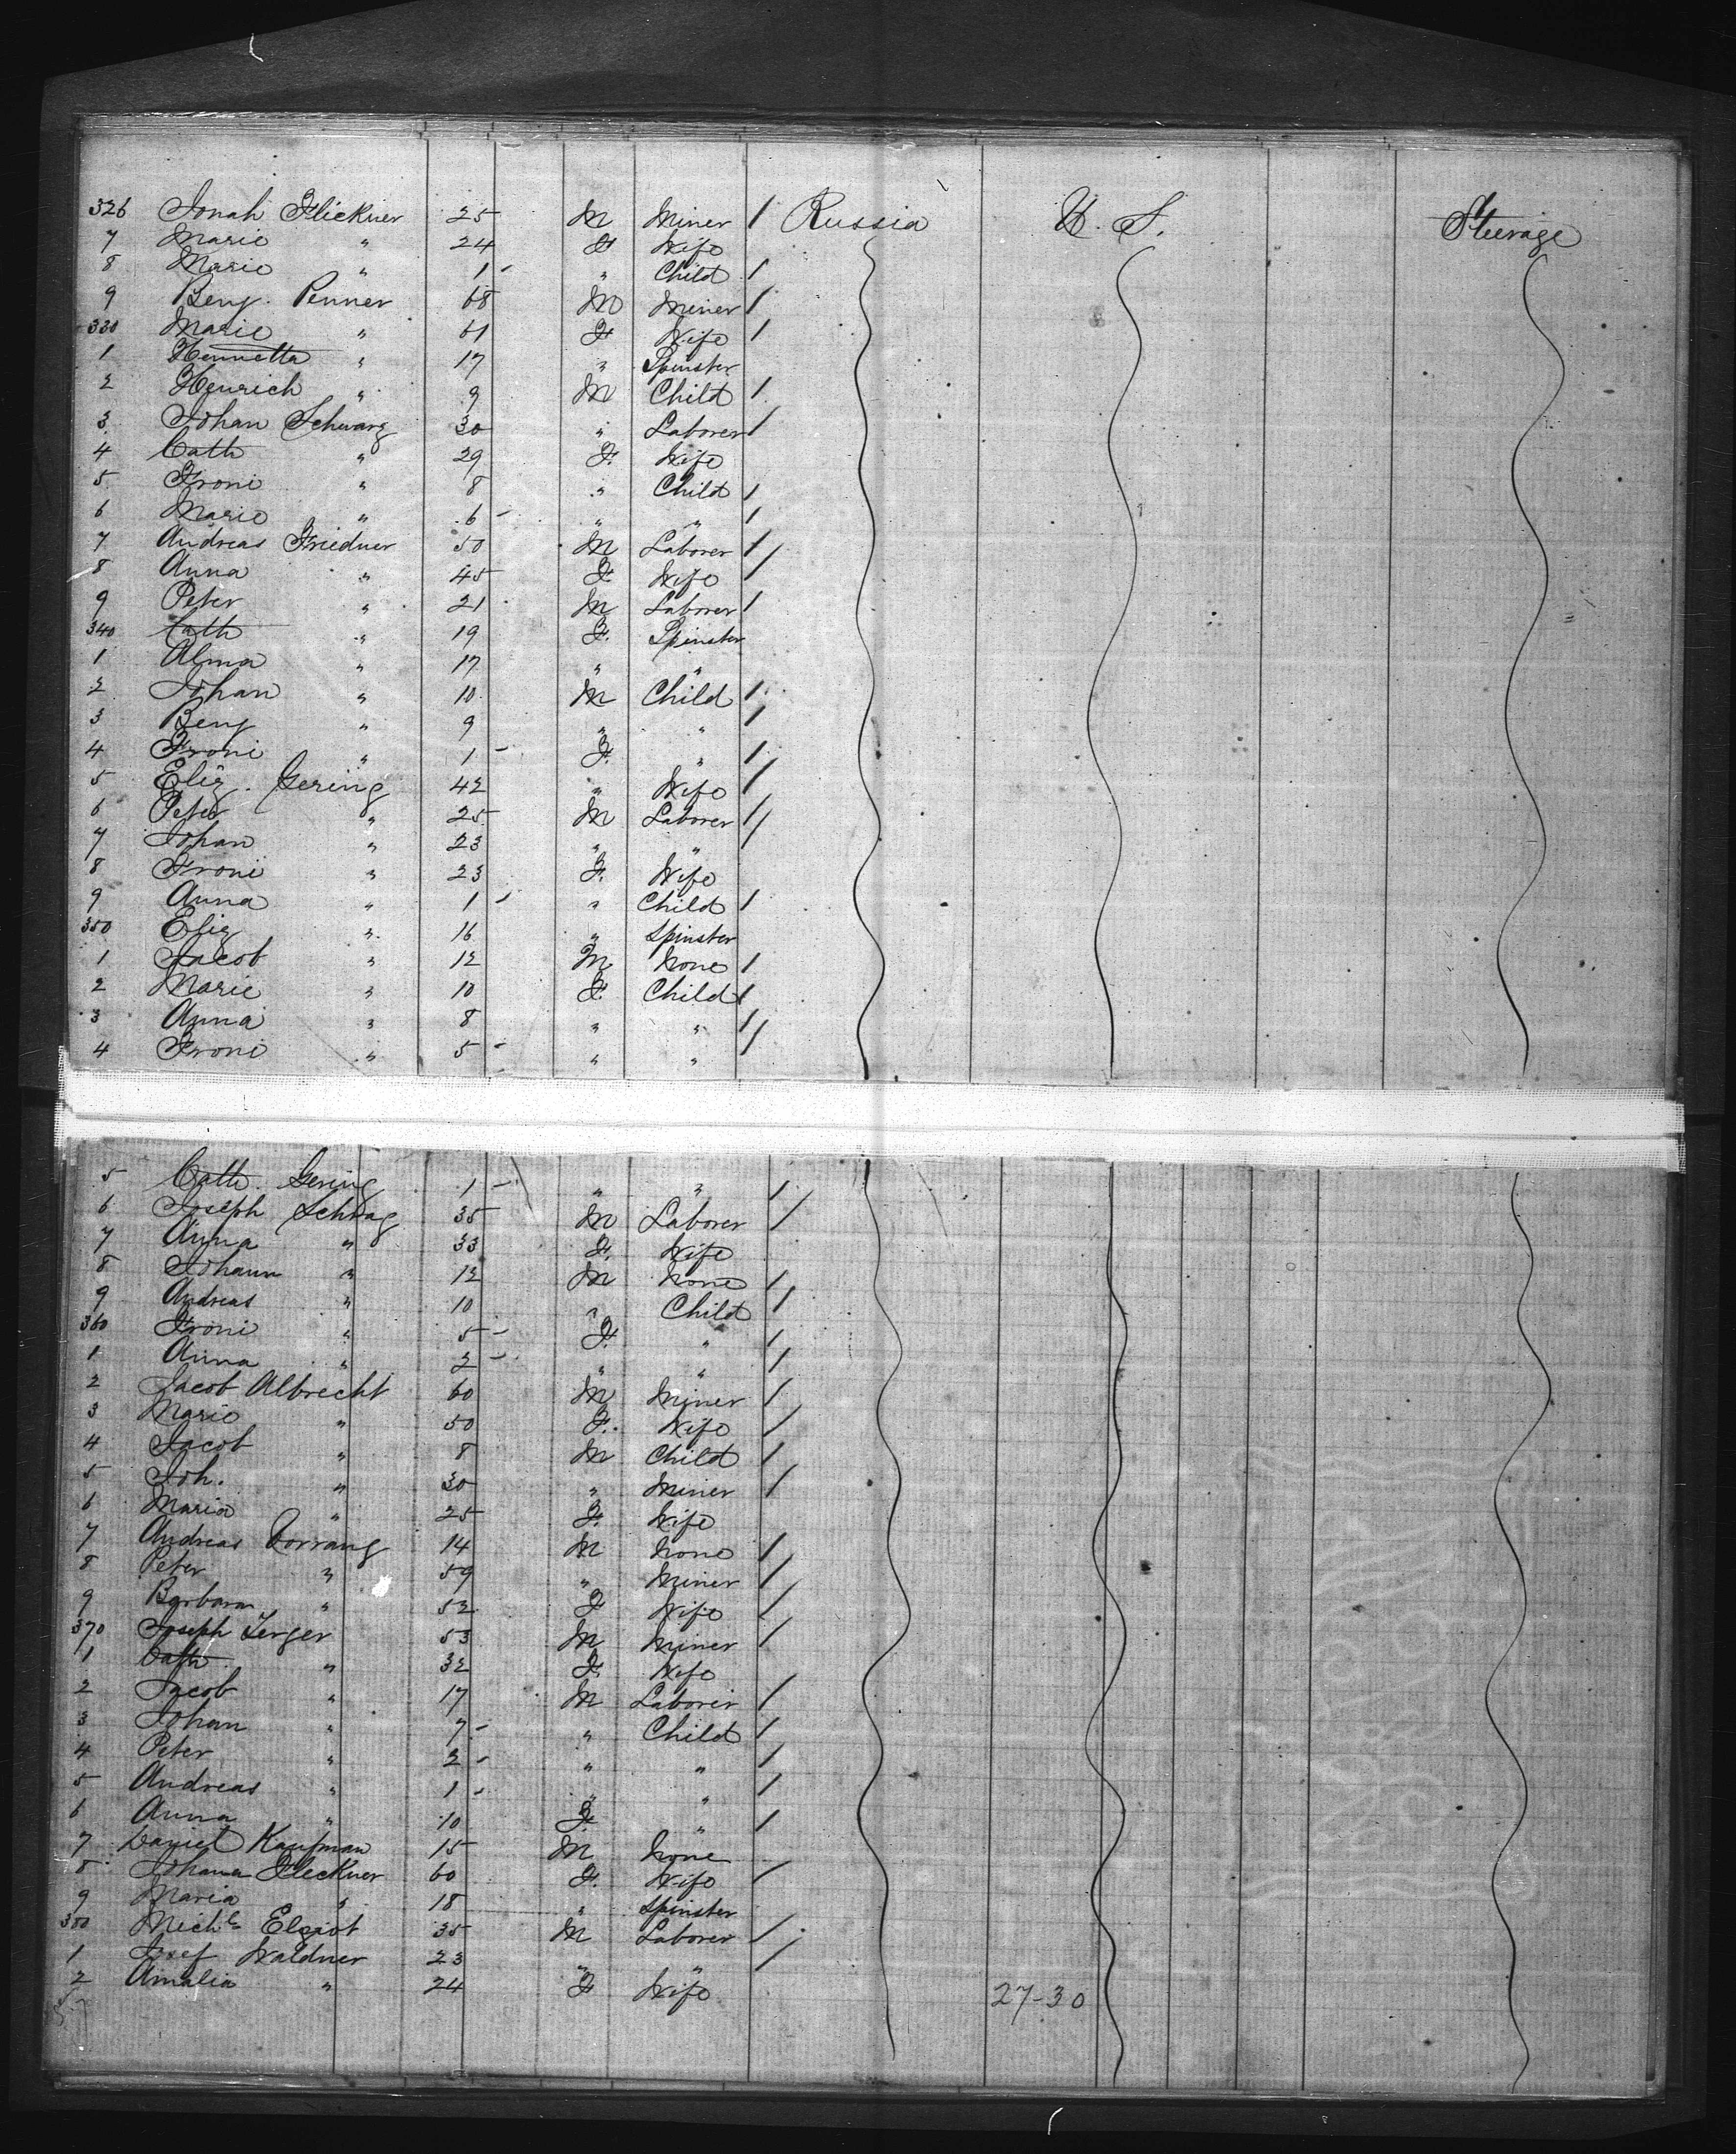 326 Jonah Flickner 25 M Miner / Russia U. S. Steerage
7 Marie " 24 F Wife
8 Marie " 1 - " Child /
9 Benj. Penner 68 M Miner /
330 Marie " 61 F Wife /
1 Hennetta " 17 " Spinster
2 Henrich " 9 M Child /
3 Johan Schwarz 30 " Laborer /
4 Cath " 29 F. Wife
5 Froni " 8 " Child /
6 Marie " 6 - " " /
7 Andreas Friedner 50 M Laborer /
8 Anna " 45 F. Wife /
9 Peter " 21 M Laborer /
340 Cath " 19 F. Spinster
1 Alma " 17 " "
2 Johan " 10 M Child /
3 Benj " 9 " " /
4 Froni " 1 - F. " /
5 Eliz. Gering 42 " Wife /
6 Peter " 25 M Laborer /
7 Johan " 23 " " /
8 Froni " 23 F. Wife
9 Anna " 1 - " Child /
350 Eliz " 16 " Spinster
1 Jacob " 12 M None /
2 Marie " 10 F. Child /
3 Anna " 8 " " /
4 Froni " 5 - " " /
5 Cath. Gering 1 - " " /
6 Joseph Schrag 35 M Laborer /
7 Anna " 33 F. Wife
8 Johann " 12 M None /
9 Andreas " 10 " Child /
360 Froni " 5 - F. " /
1 Anna " 2 - " " /
2 Jacob Albrecht 60 M Miner /
3 Marie " 50 F. Wife /
4 Jacob " 8 M Child /
5 Joh. " 30 " Miner /
6 Maria " 25 F. Wife
7 Andreas 14 M None /
8 Peter " 59 " Miner /
9 Barbara " 52 F Wife /
370 Joseph Zerger 53 M Miner /
1 Cath " 32 F. Wife
2 Jacob " 17 M Laborer /
3 Johan " 7 - " Child /
4 Peter " 2 - " " /
5 Andreas " 1 - " " /
6 Anna " 10 F. " /
7 Daniel Kaufman 15 M None
8 Johana Fleckner 60 F. Wife /
9 Maria " 18 " Spinster
380 Mich. 35 M Laborer /
1 Josef Waldner 23 " " /
2 Amalia " 24 F Wife
27-30